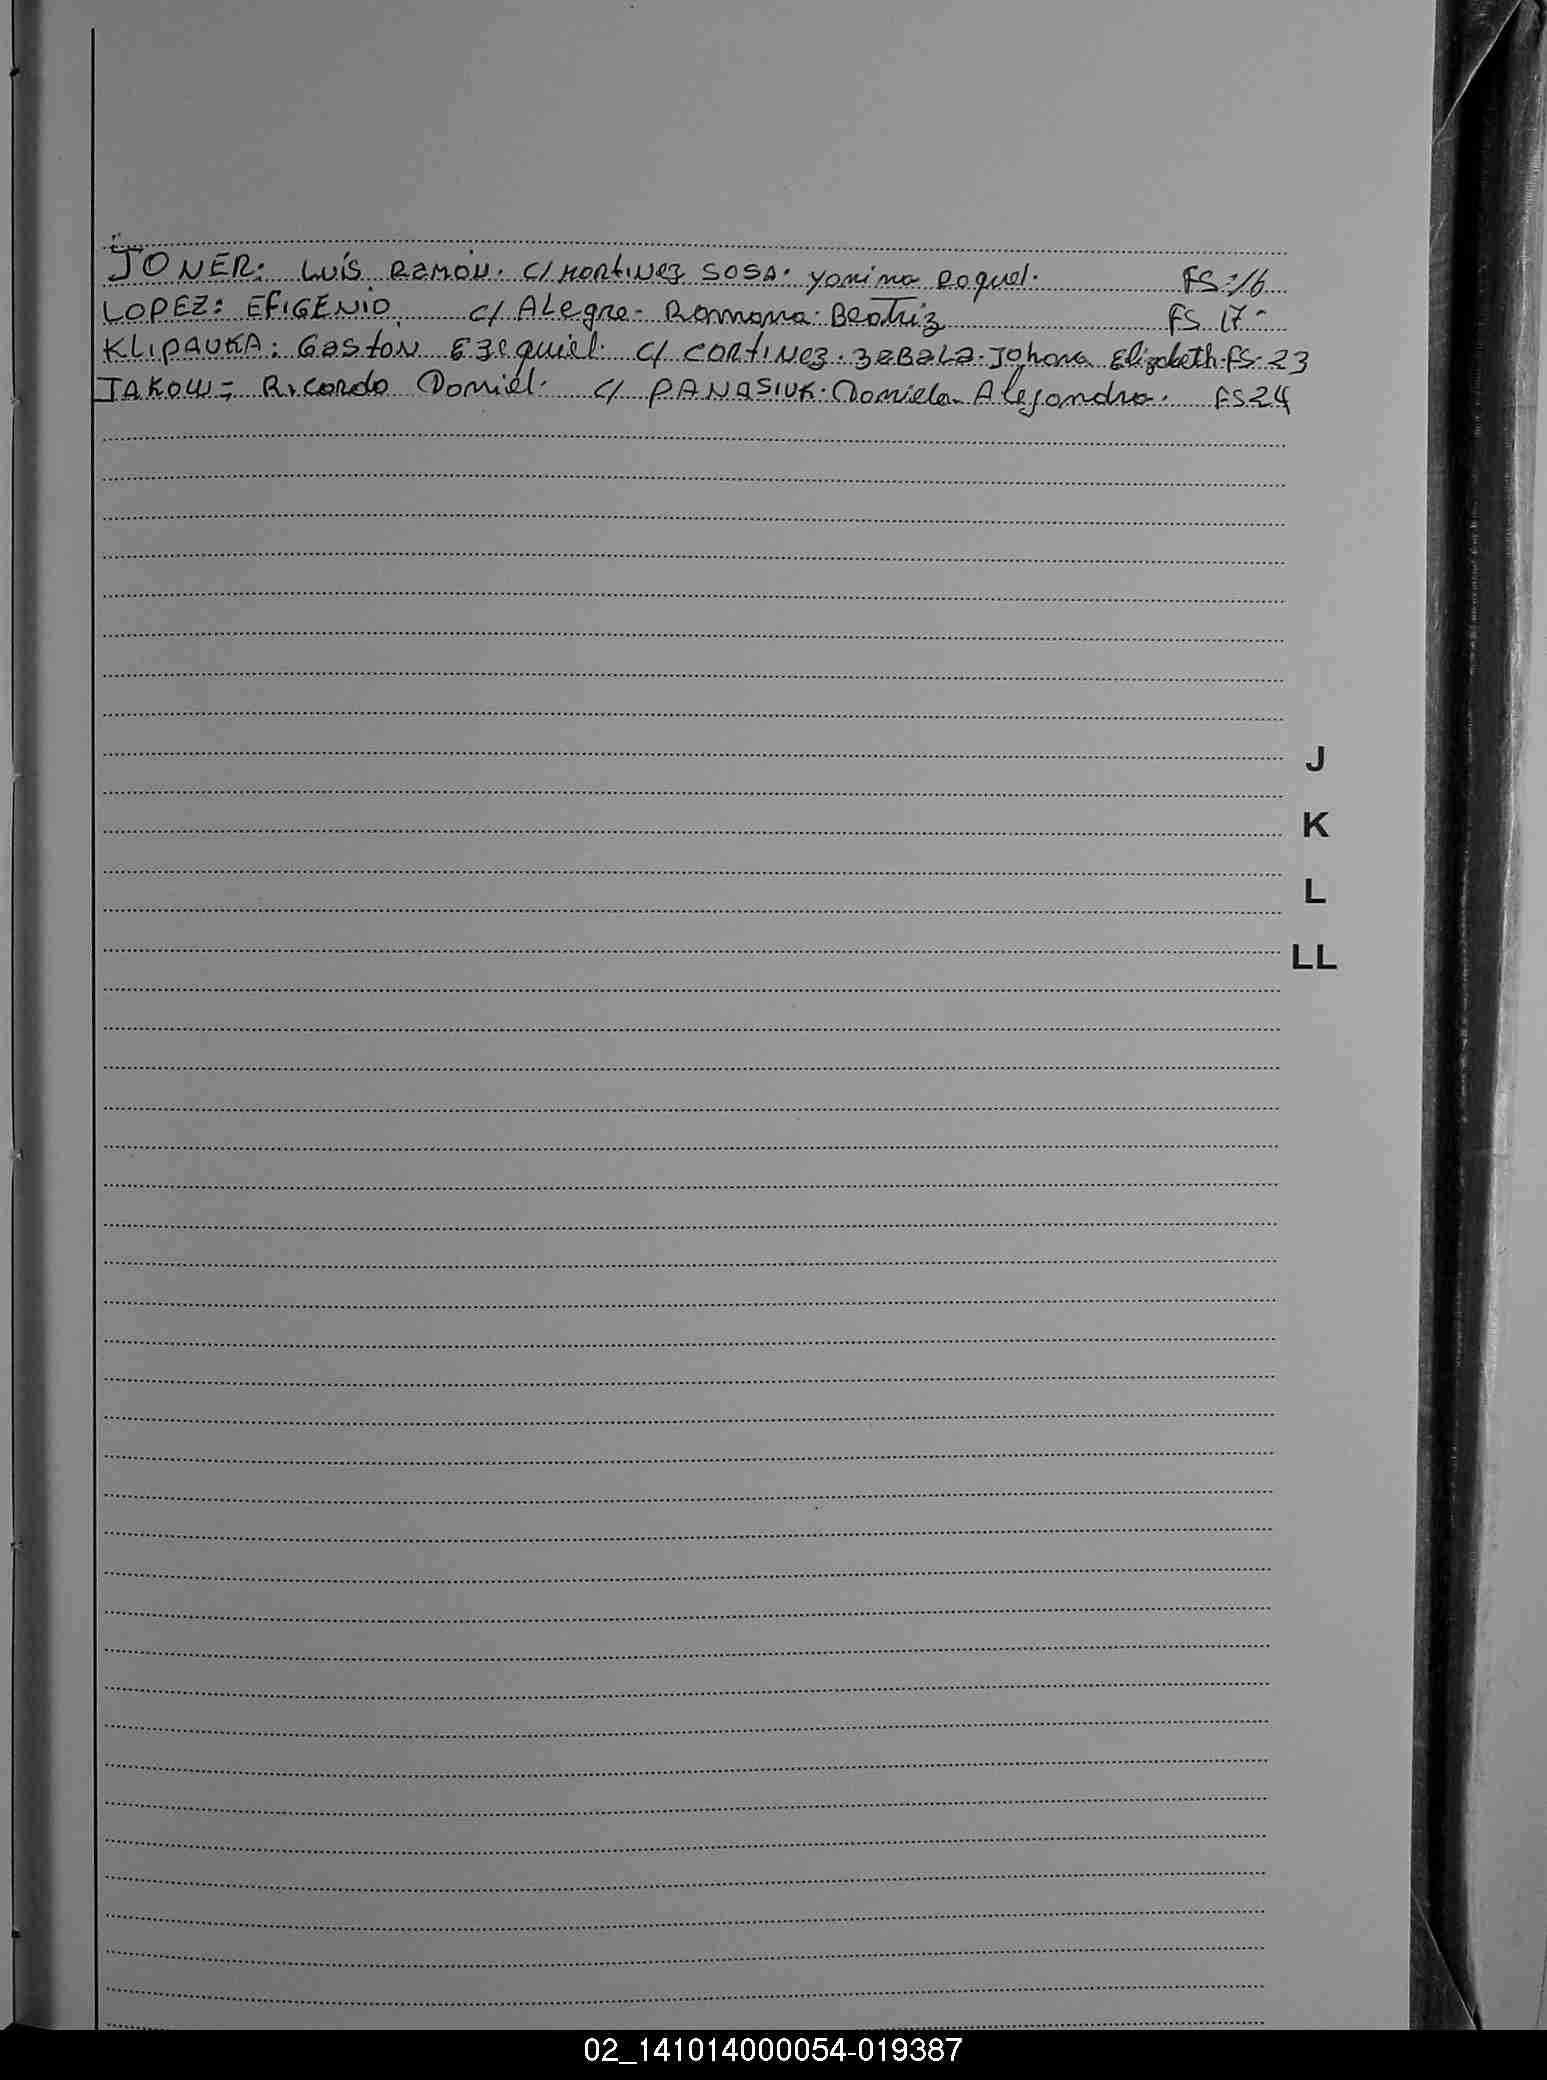 JONER: Luís Ramón. C/ Martinez SOSA. Yanina Raquel. FS: 16
LOPEZ: EFIGENIO. C/ Alegre - Rammona. Beatriz FS 17-
KLIPAUKA: Gaston Ezequiel. C/ CORtiNez. Zabala. Johana Elizabeth. FS. 23
JAKOW = Ricardo Daniel. C/ PANASIUK. Daniela. Alejandra. FS 24
J
K
L
LL
02_141014000054-019387